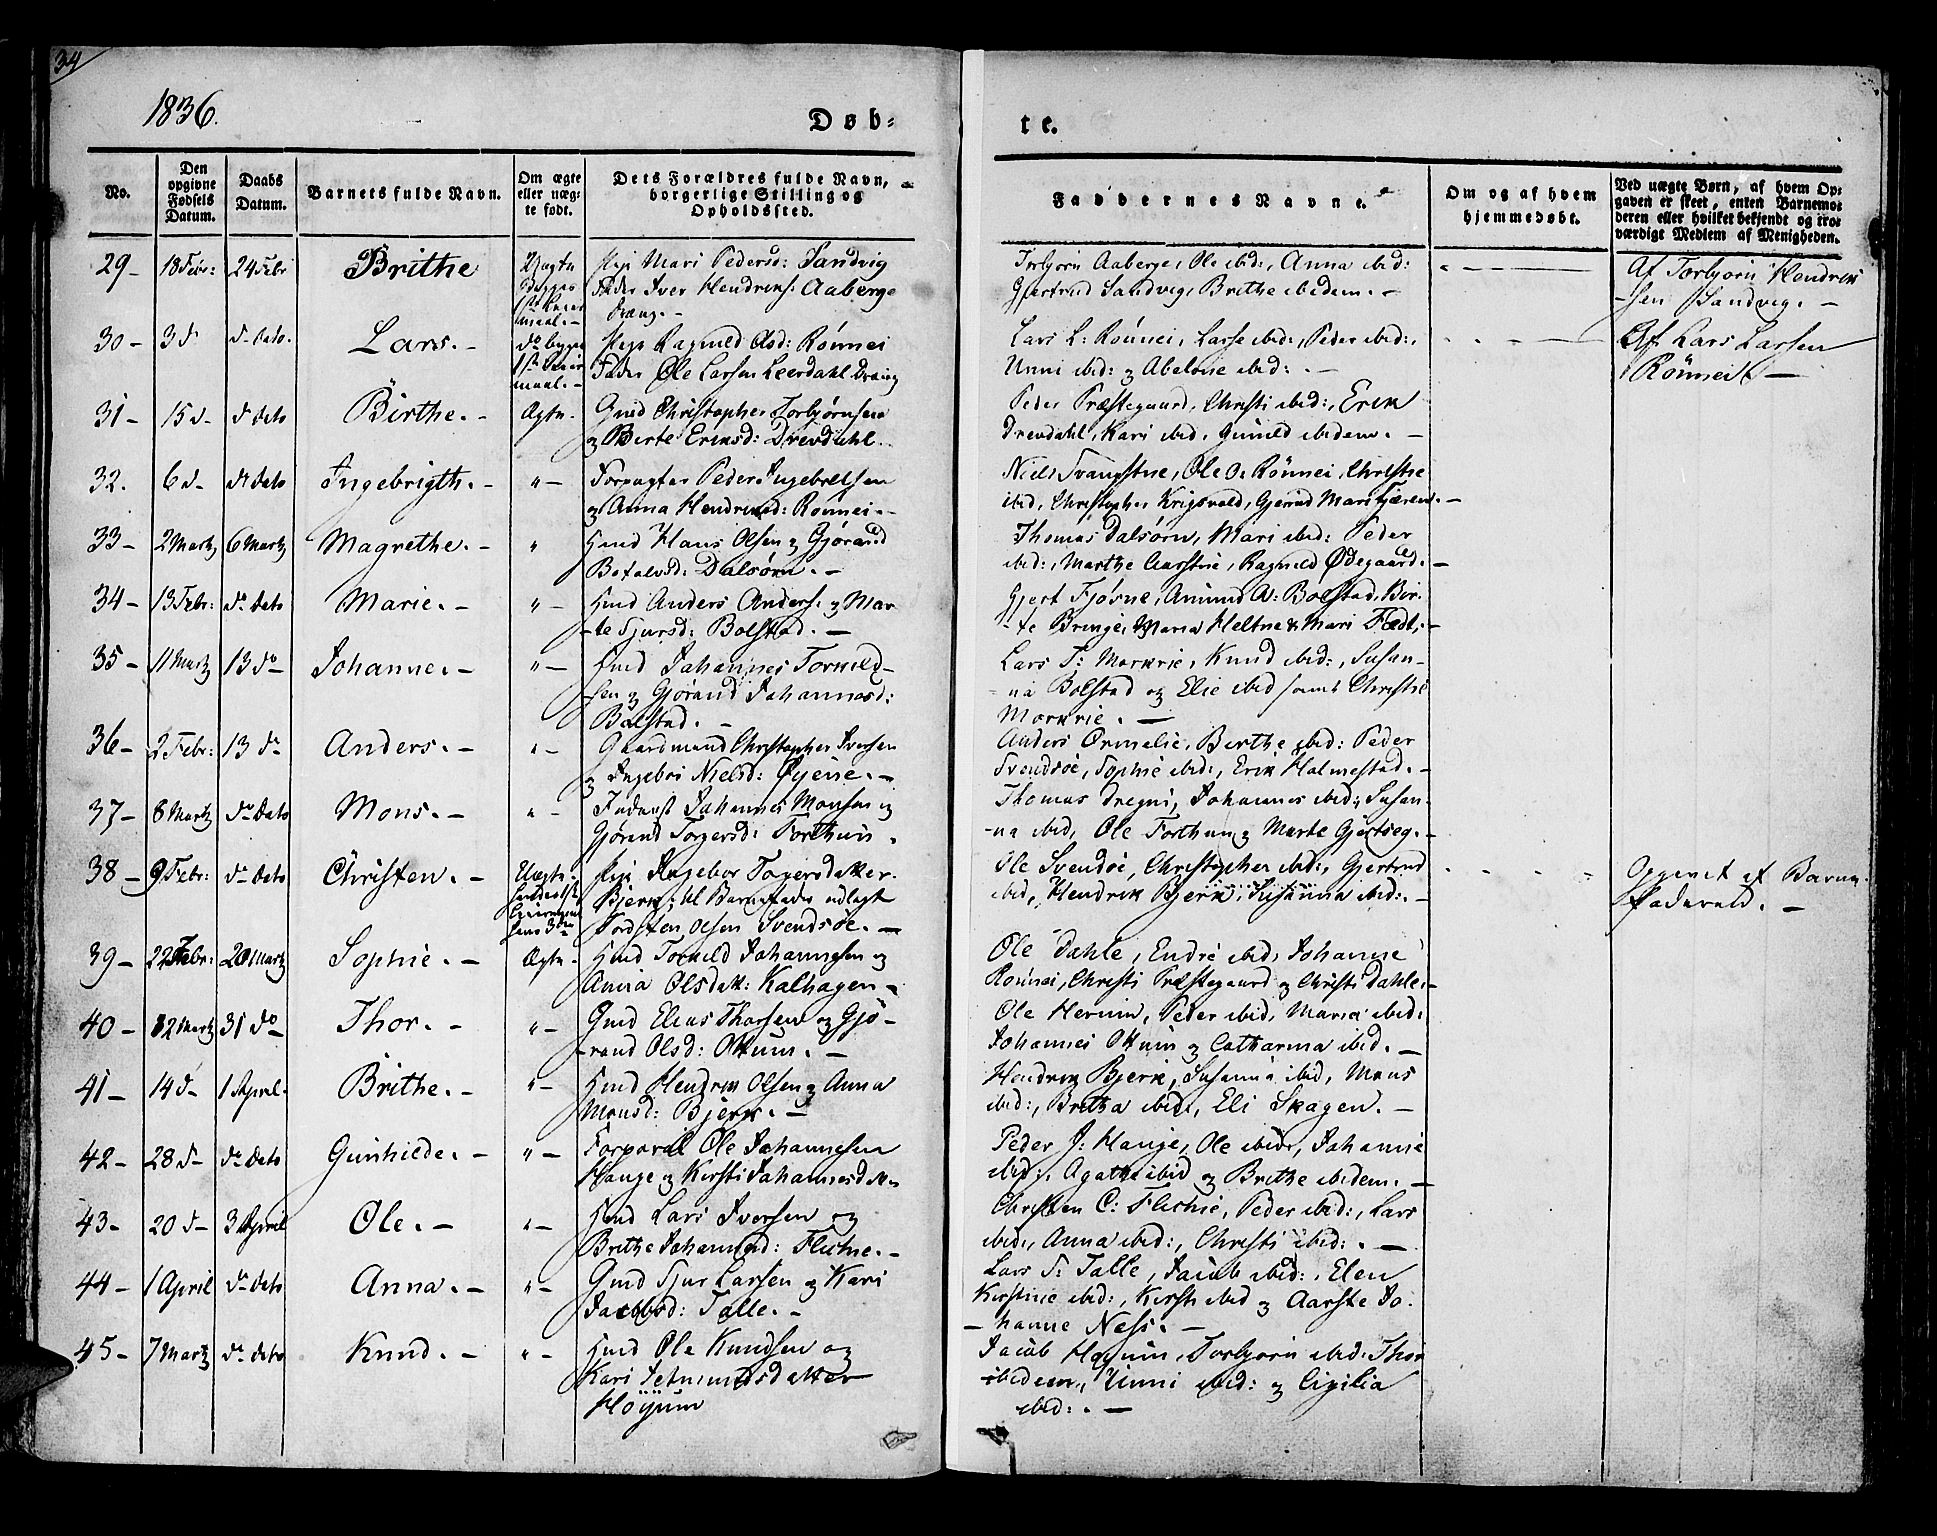 34
1836.
Døb=
te.
No.
Den
opgivne
Fødsels
Datum.
Daabs
Datum.
Barnets fulde Navn.
Om ægte
eller uæg-
te født.
Dets Forældres fulde Navn,
borgerlige Stilling og
Opholdssted.
Faddernes Navne.
Om og af hvem
hjemmedøbt.
Ved uægte Børn, af hvem Op-
gaven er skeet, enten Barnemo-
deren eller hvilket bekjendt og tro-
værdigt Medlem af Menigheden.
29- 18 Febr: 24 Febr Brithe Uægte Pige Mari Pedersd: Sandvig
Begges Fader Iver Hendriks: Aaberge
1ste Leier
maal.-
Torbjørn Aaberge, Ole ibid:, Anna ibid:
Gjertrud Sandvig, Brithe ibidem.-
Af Torbjørn Hendrik
-sen Sandvig.-
30- 3 d d- Dato. Lars.- do begge Pige Ragnild Olsd: Rönnei
1ste Leier Fader Ole Larsen Leerdahl Dreng
maal.-
Lars L: Rönnei, Lasse ibid:, Peder ibid:,
Unni ibid: og Abelone ibid:.-
Af Lars Larsen
Rönnei.-
31- 15 d- d Dato Birthe.- Ægte- Gmd Christopher Torbjørnsen
og Birte Eriksd: Drevdahl.
Peder Præstegaard, Christi ibid:, Erik
Drevdahl, Kari ibid, Gunild ibidem.-
32. 6 d- do Dato Ingebrigth.- "- Forpagter Peder Ingebretsen
og Anna Hendriksd: Rönnei.-
Niels Svangstue, Ole O: Rönnei, Christie
ibid, Christopher Krigsvold, Gjerud Marifjæren.-
33- 2 Martz 6 Martz Magrethe.- " Hmd Hans Olsen og Gjørand
Botolvsd: Dalsørn.-
Thomas Dalsørn, Mari ibid: Peder
ibid:, Marthe Aarstrie, Ragnild Ødegaard.-
34- 13 Febr: do Dato Marie.- "- Hmd Anders Anders: og Mar
-te Sjursd: Bolstad.-
Gjert Fjøsne, Amund A: Bolstad, Bir-
-te Bringe, Maria Heltne & Mari Fædt.-
35- 11 Martz 13 do Johanne.- "- Gmd Johannes Torkild-
-sen og Gjørand Johannesd:
Bolstad.-
Lars T: Morkrie, Knud ibid:, Susan-
-na Bolstad og Elie ibid samt Christie
Morkrie.-
36- 2 Febr: 13 do Anders.- "- Gaardmand Christopher Iversen
og Ingebor Nielsd: Øyene.-
Anders Ormelie, Birthe ibid: Peder
Svendsøe, Sophie ibid:, Erik Halmestad.-
37- 8 Martz do Dato Mons.- "- Inderst Johannes Monsen og
Gjørand Torgersd: Forthun.
Thomas Dregni, Johannes ibid:, Susan-
-na ibid, Ole Forthun og Marte Gjertseg.-
38- 9 Febr: do Dato Christen.- Uægte. Pige Ingebor Togersdatter
Bjerk, til Barnefader udlagt
Tordsten Olsen Svendsøe.-
Ole Svendsøe, Christopher ibid:, Gjertrud
ibid, Hendrik Bjerk, Susanna ibid:.-
Opgivet af Barne-
faderen.-
39- 22 Febr: 20 Martz Sophie.- Ægte- Hmd Torkild Johannesen og
Anna Olsdatt: Kalhagen-
Ole Dahle, Endre ibid, Johanne
Rönnei, Christi Præstegaard og Christi Dahle.-
40- 12 Martz 31 do Thor.- "- Gmd Elias Thorsen og Gjø-
-rand Olsd: Ottum.-
Ole Herum, Peder ibid, Maria ibid:
Johannes Ottum og Catharina ibid.-
41- 14 d- 1 April. Brithe.- "- Hmd Hendrik Olsen og Anna
Monsd: Bjerk.-
Hendrik Bjerk, Susanna ibid, Mons
ibid:, Britha ibid:, Eli Skagen.-
42- 28 d- do Dato Gunhilde.- "- Corporal Ole Johannesen
Hauge og Kirsti Johannesdatter
Peder J: Hauge, Ole ibid:, Johanne
ibid:, Agatha ibid og Brithe ibidem.-
43- 20 d- 3 April Ole.- "- Hmd Lars Iversen og
Brithe Johannesd: Flichie.-
Christen C: Flichie, Peder ibid:, Lars
ibid:, Anna ibid:, Christi ibid:.-
44- 1 April do Dato Anna.- "- Gmd Sjur Larsen og Kari
Jacobsd: Talle.-
Lars S: Talle, Jacob ibid:, Elen
Kirstine ibid:, Kirsti ibid og Aarste Jo-
-hanne Ness.-
45- 7 Martz do Dato Knud.- "- Hmd Ole Knudsen og
Kari Sehmundsdatter
Höyum
Jacob Høyum, Torbjørn ibid: Thor
ibidem, Unni ibid: og Cicilia
ibid:.-